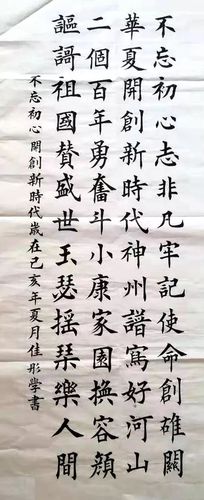 不忘初心志非凡牢記使命創雄關
華夏開創新時代神州譜寫好河山
二個百年勇奮斗小康家園換容顏
謳謌祖國贊盛世玉瑟搖琹樂人間
不忘初心開創新時代歲在己亥年夏月佳彤學書